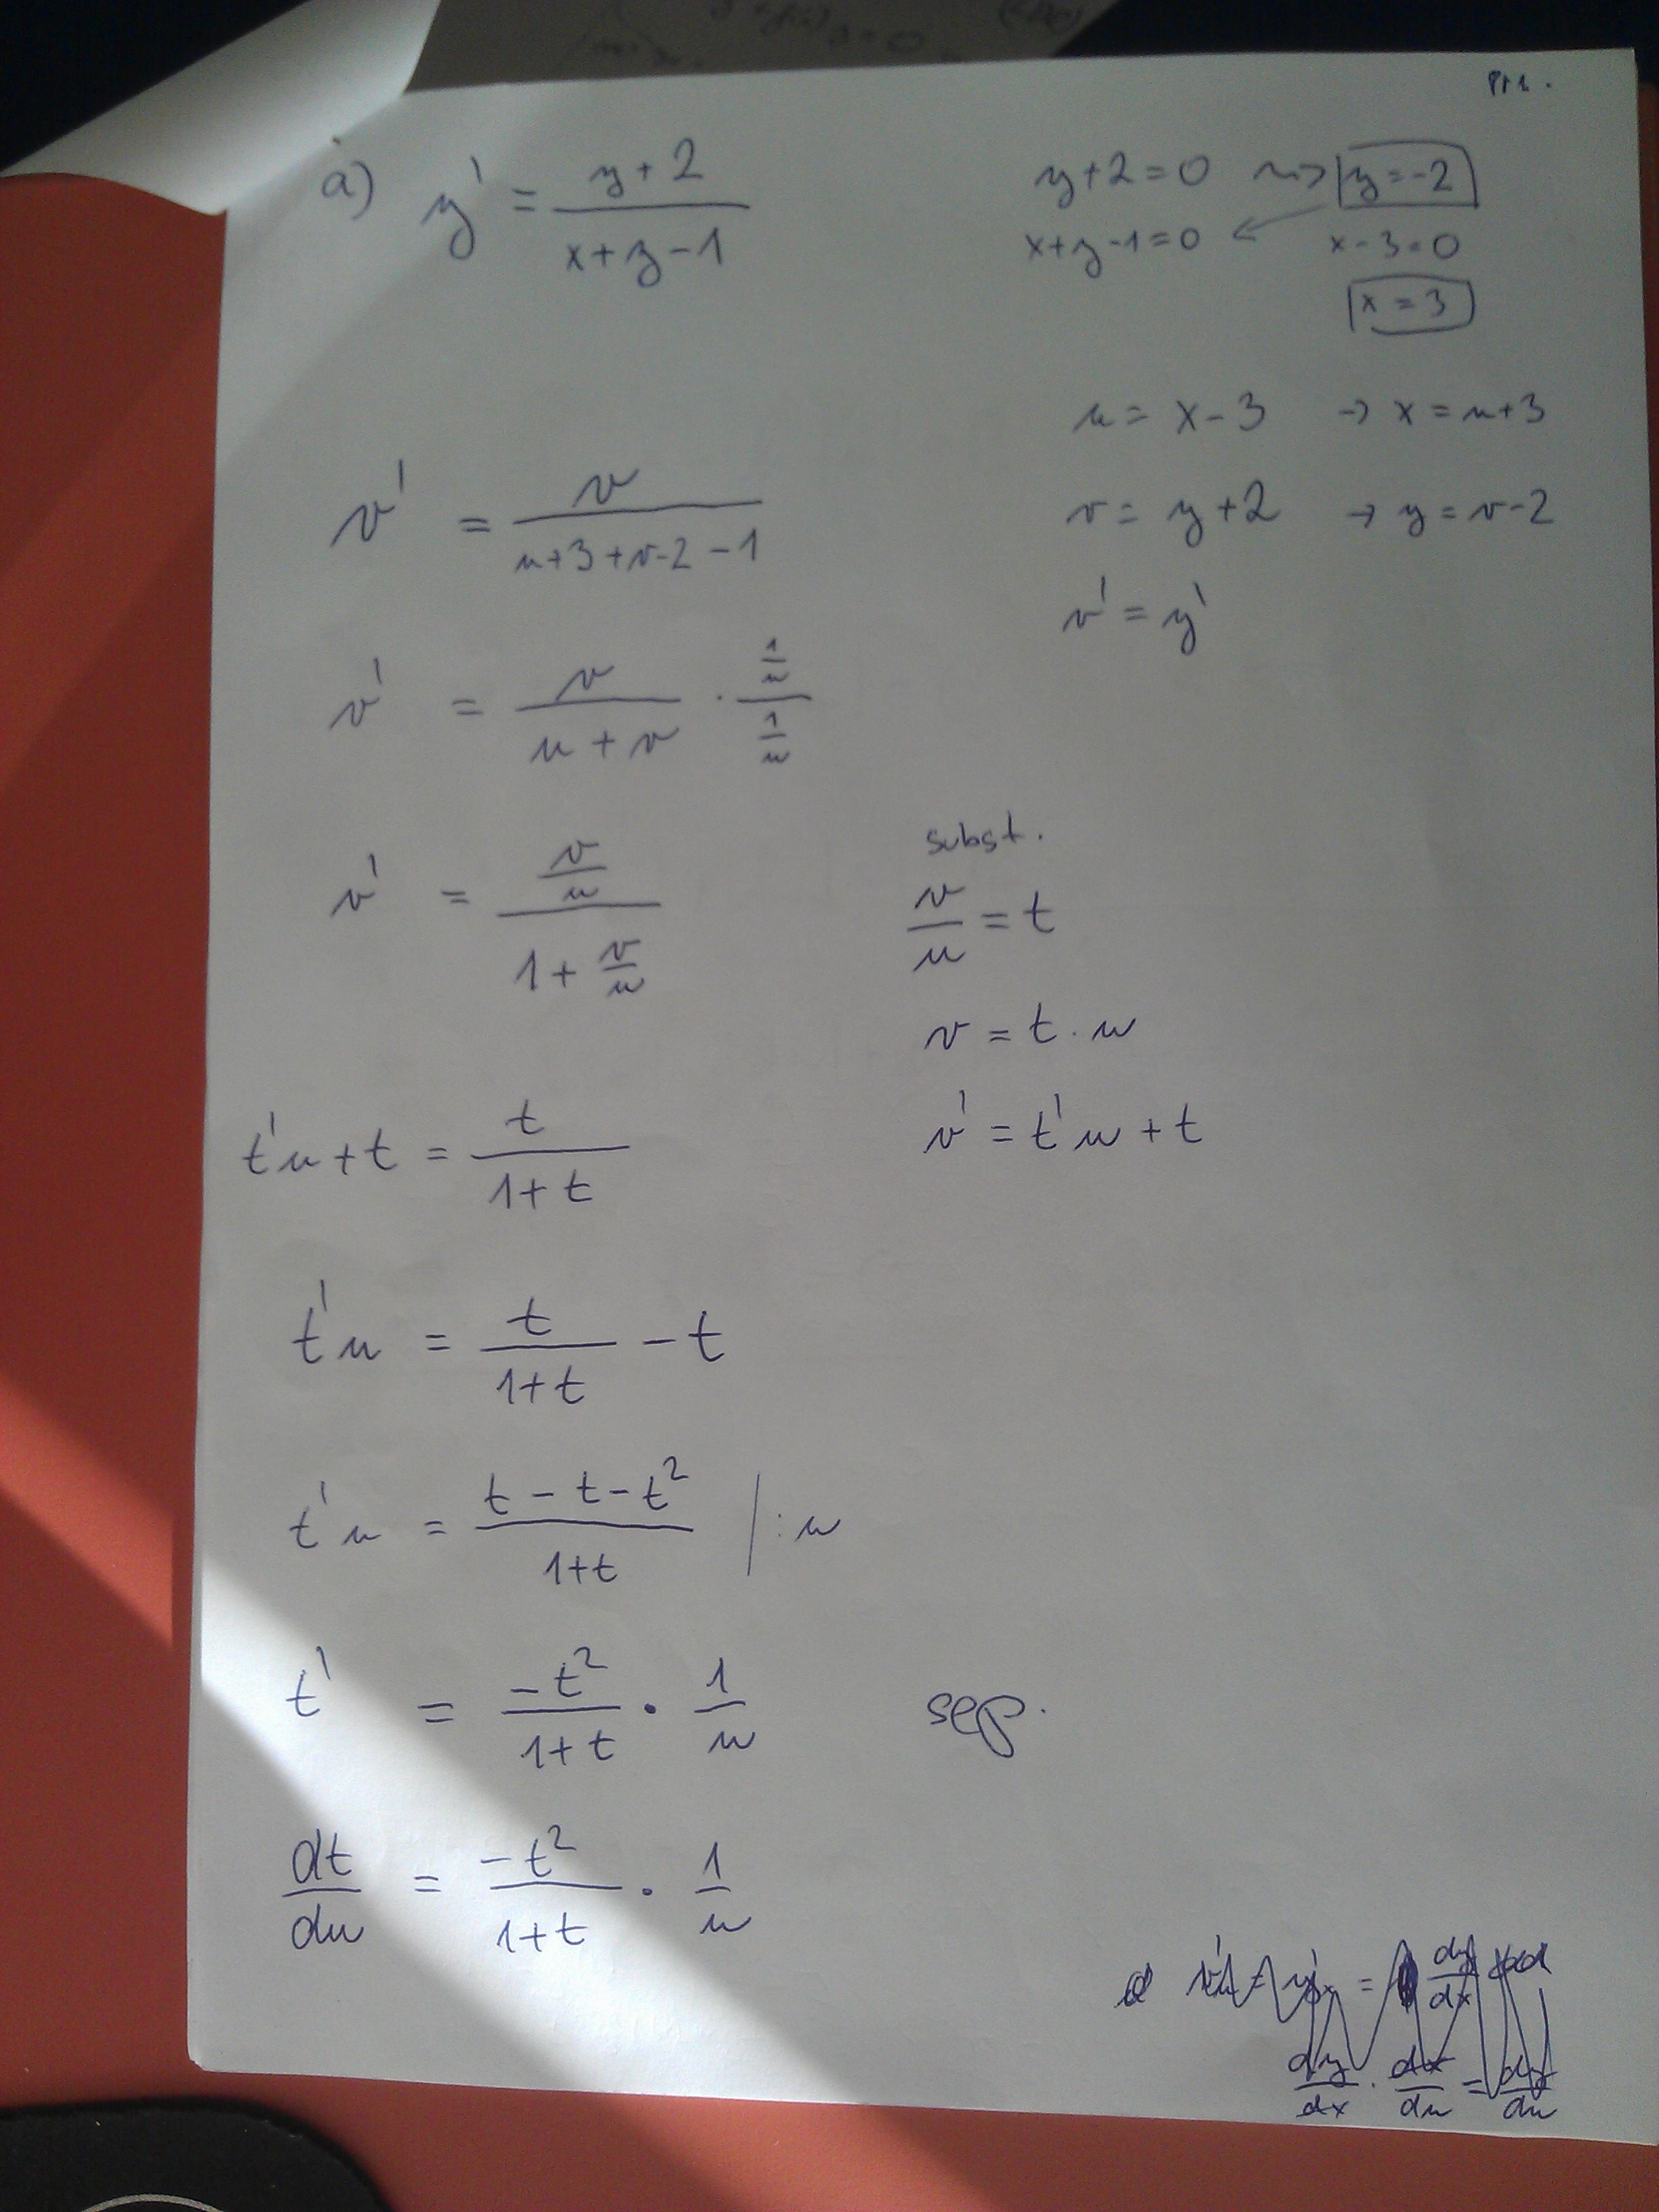 a) y' = (y+2)/(x+y-1)
y+2=0 ⇝ y=-2
x+y-1=0 ← x-3=0
x=3
u = x-3 → x = u+3
v = y+2 → y = v-2
v' = y'
v' = v/(u+3+v-2-1)
v' = v/(u+v) · (1/u)/(1/u)
v' = (v/u)/(1+v/u)
subst.
v/u = t
v = t·u
v' = t'u+t
t'u+t = t/(1+t)
t'u = t/(1+t) - t
t'u = (t-t-t²)/(1+t) /:u
t' = -t²/(1+t) · 1/u
dt/du = -t²/(1+t) · 1/u
dy/dx · dx/du = dy/du